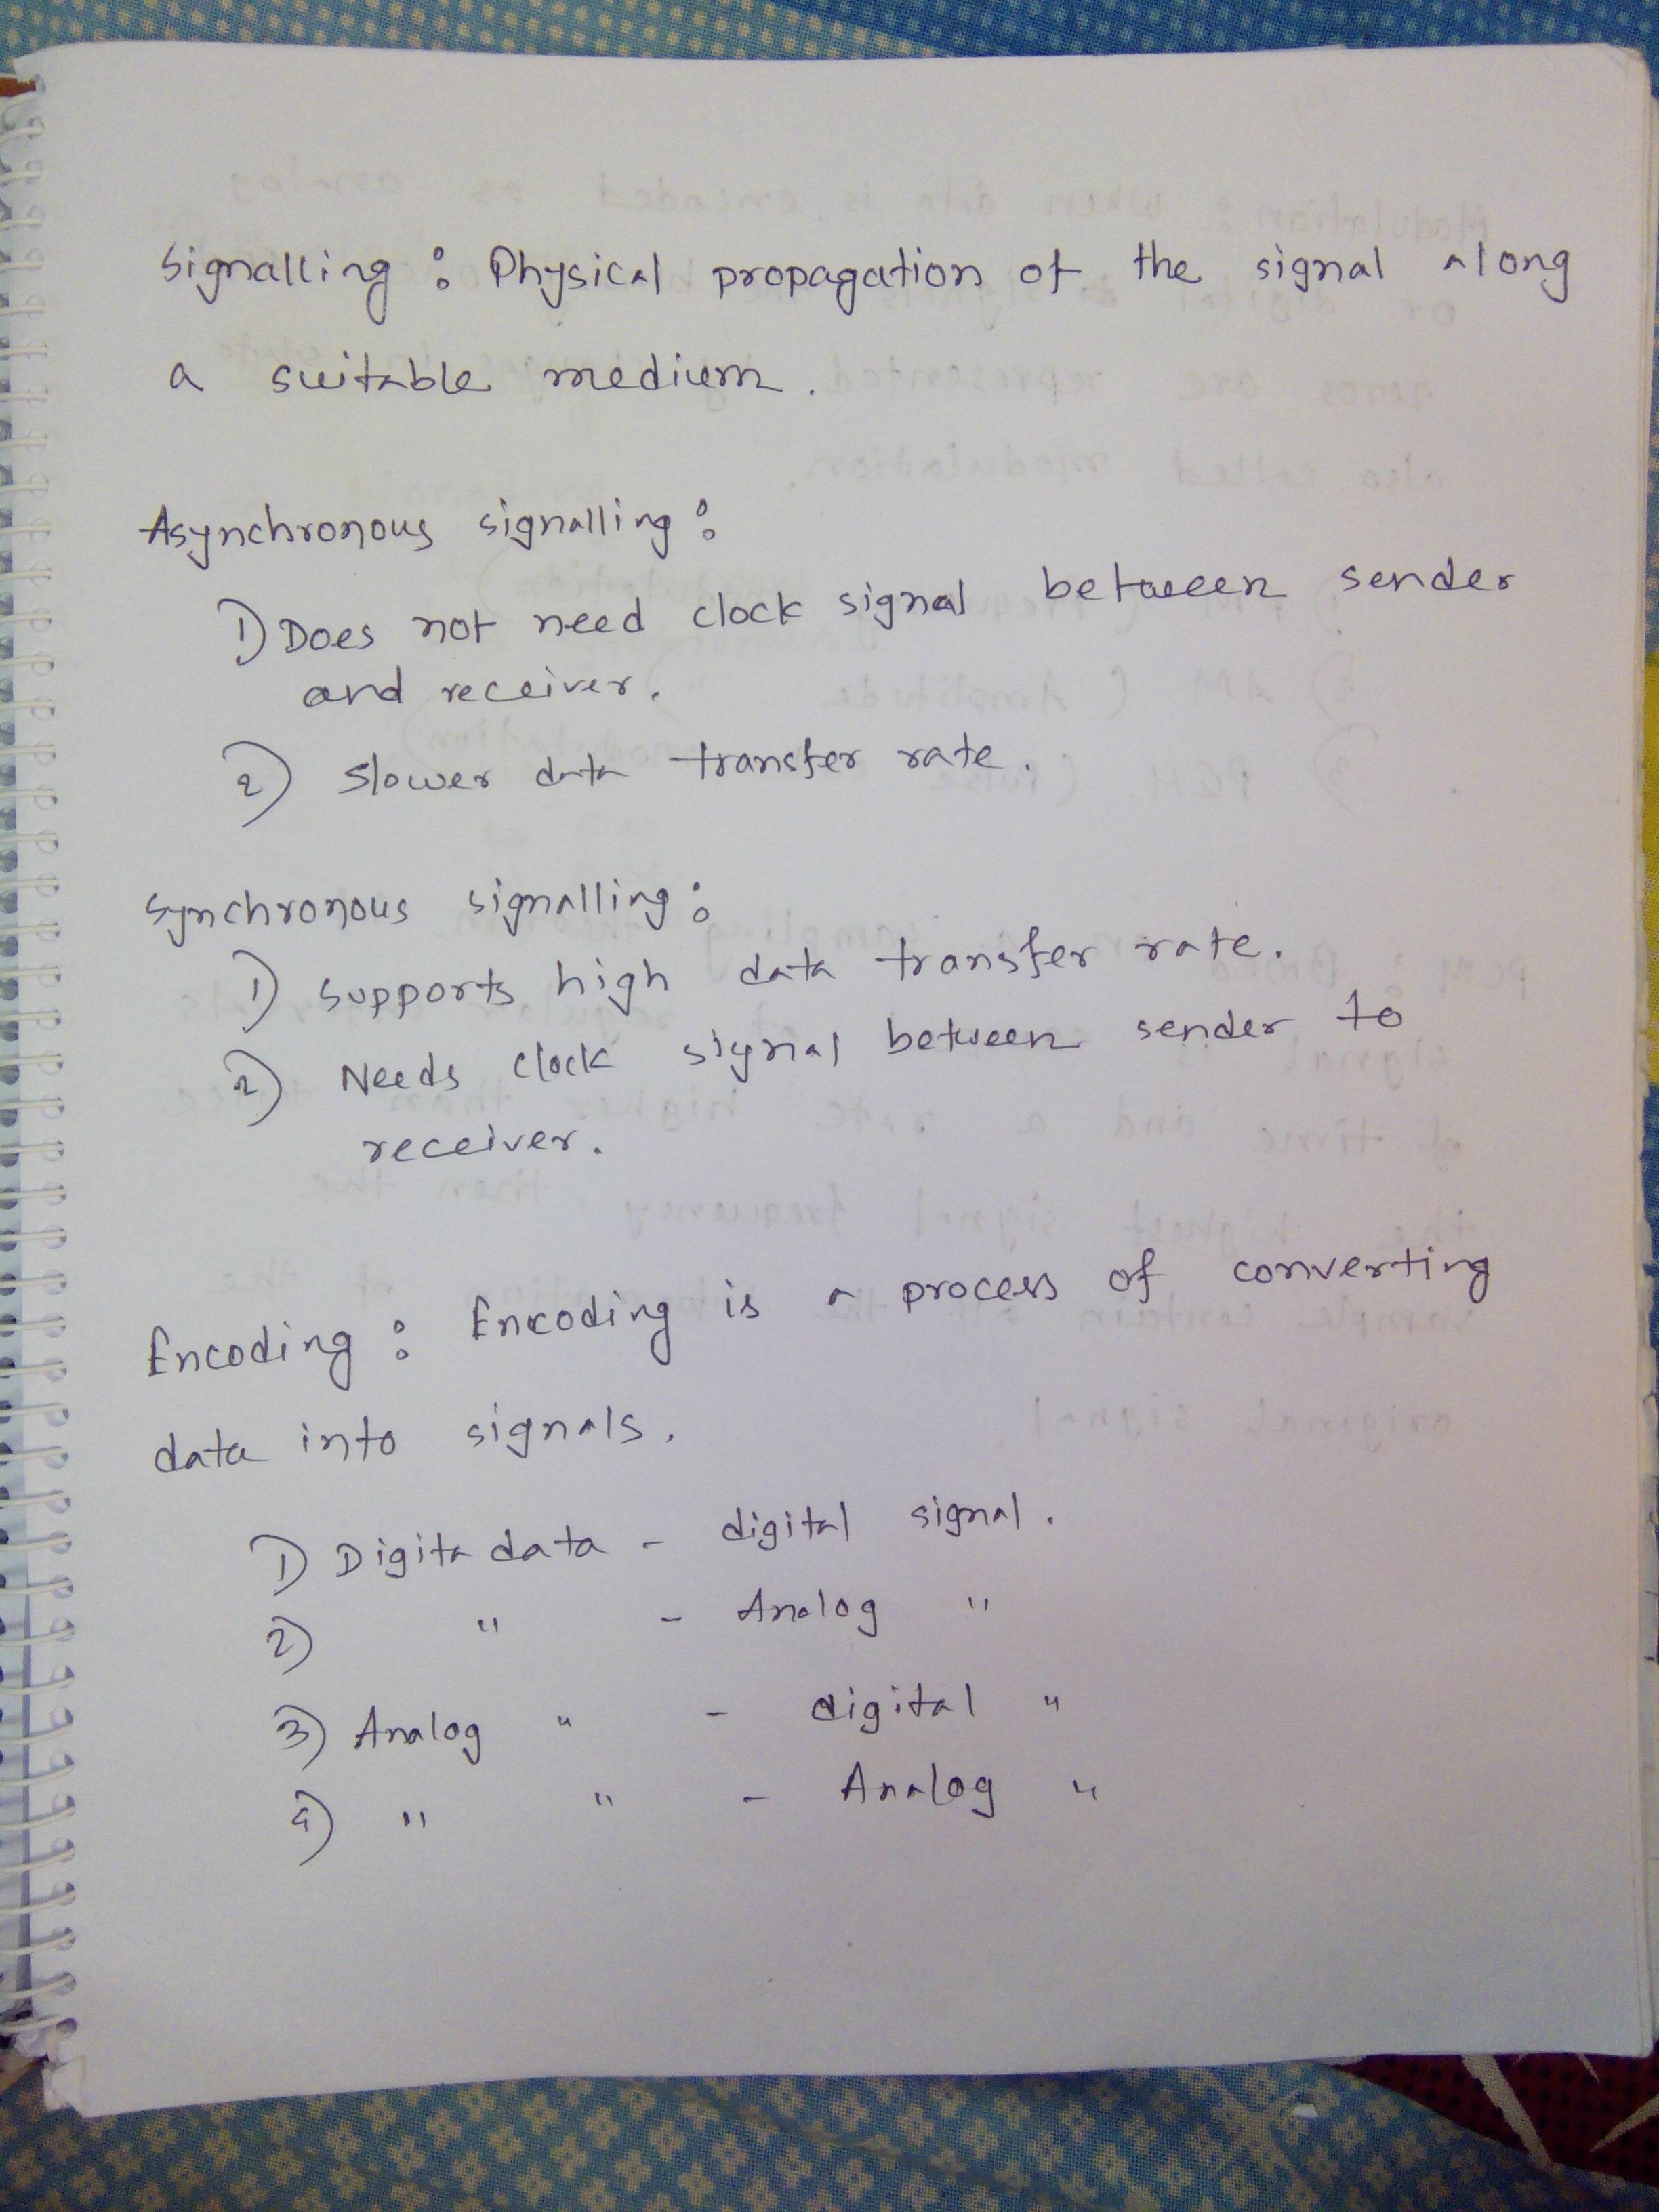 Signalling : Physical propagation of the signal along
a suitable medium.
Asynchronous signalling :
1) Does not need clock signal between sender
and receiver.
2) Slower data transfer rate.
Synchronous signalling :
1) Supports high data transfer rate.
2) Needs clock signal between sender to
receiver.
Encoding : Encoding is a process of converting
data into signals.
1) Digita data - digital signal.
2) " - Analog "
3) Analog " - digital "
4) " " - Analog "